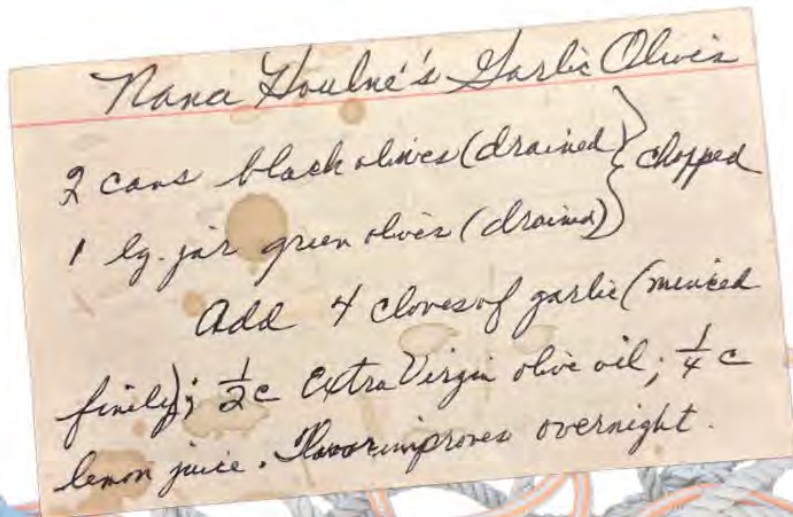 Nana Houlne's Garlic Olives
2 cans black olives (drained) } chopped
1 lg. jar green olives (drained) }
Add 4 cloves of garlic (minced
finely); 1/2 c Extra Virgin olive oil; 1/4 c
lemon juice. Flavor improves overnight.